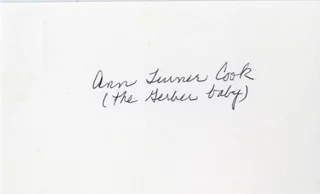 Ann Turner Cook
(the Gerber baby)